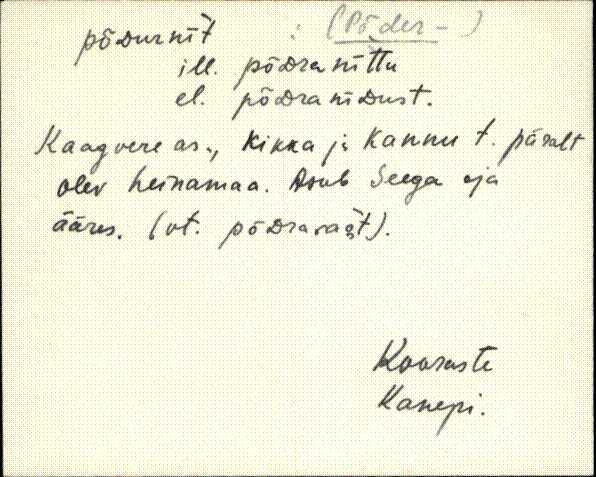 põdurnìt : (Põder-)
ill. põdranittu
el. põdranidust.
Kaagvere as., Kikka ja Kannu t. päralt
olev heinamaa. Asub Seega oja
ääres. (vt. põdrarast).
Kooraste
Kanepi.